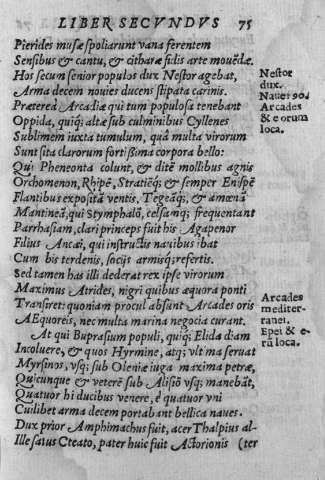 LIBER SECVNDVS 75
Pierides musæ spoliarunt vana ferentem
Sensibus & cantu, & citharæ fidis arte mouẽdæ.
Hos secum senior populos dux Nestor agebat,
Arma decem nouies ducens stipata carinis.
Præterea Arcadiã qui tum populosa tenebant
Oppida, quiq; altæ sub culminibus Cyllenes
Sublimem iuxta tumulum, quà multa virorum
Sunt sita clarorum fortißima corpora bello:
Qui Pheneonta colunt, & ditẽ mollibus agnis
Orchomenon, Rhipẽ, Stratiẽq; & semper Enispẽ
Flantibus expositã ventis, Tegeãq; & amœnã
Mantineã, qui Stymphalõ, celsamq; frequentant
Parrhasiam, clari princeps fuit his Agapenor
Filius Ancæi, qui instructis nauibus ibat
Cum bis terdenis, socijs armisq; refertis.
Sed tamen has illi dederat rex ipse virorum
Maximus Atrides, nigri quibus æquora ponti
Transiret: quoniam procul absunt Arcades oris
Æquoreis, nec multa marina negocia curant.
At qui Buprasium populi, quiq; Elida diam
Incoluere, & quos Hyrmine, atq; vlt ma seruat
Myrsinos, vsq; sub Oleniæ iuga maxima petræ,
Quicunque & veterẽ sub Alisiõ vsq; manebãt,
Quatuor hi ducibus venere, è quatuor vni
Cuilibet arma decem portabant bellica naues.
Dux prior Amphimachus fuit, acer Thalpius al-
Ille satus Cteato, pater huic fuit Actorionis (ter
Nestor
dux.
Naues 90.
Arcades
& eorum
loca.
Arcades
mediter-
ranei.
Epei & e-
rũ loca.